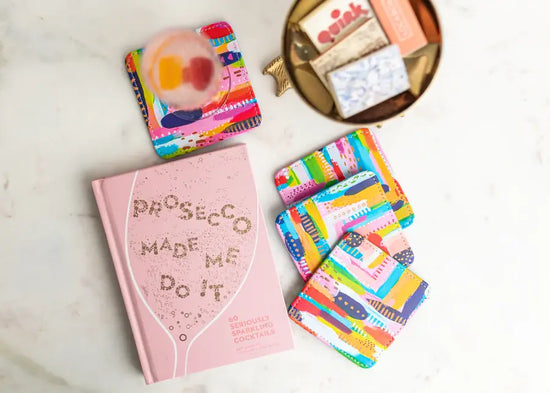 quick
PROSECCO
MADE ME
DO IT
60
SERIOUSLY
SPARKLING
COCKTAILS